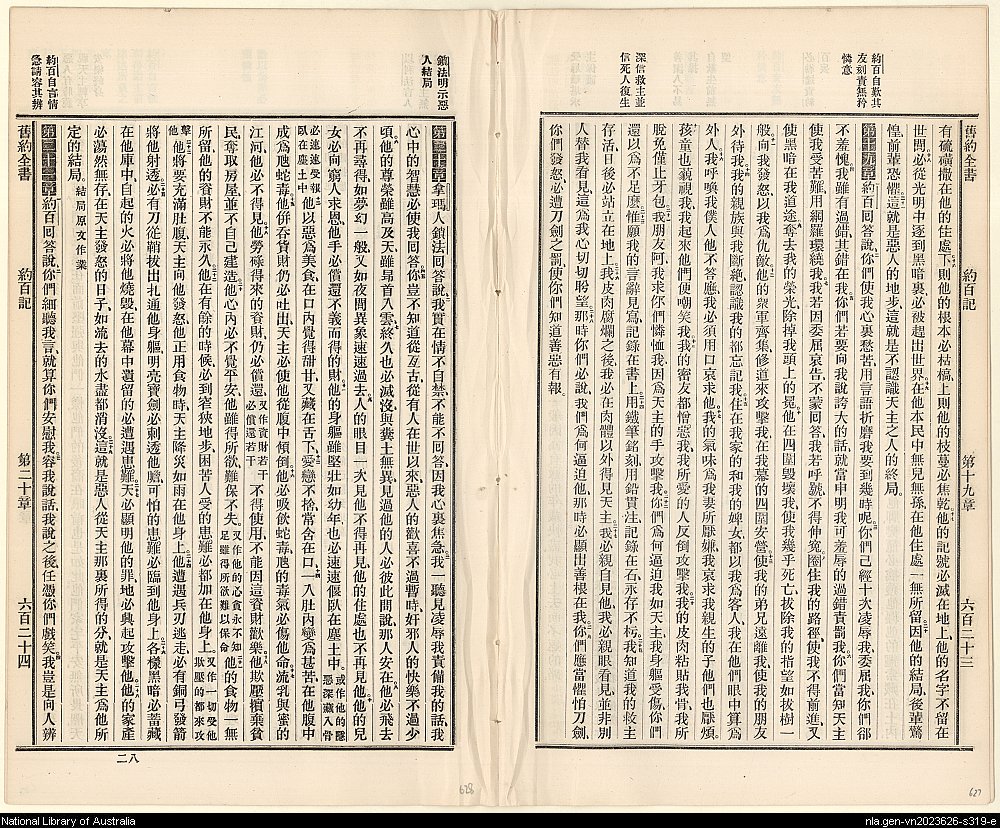 舊約全書
約百記
第十九章
六百二十三
約百自歎其
友刻責無矜
憐意
深信救主並
信死人復生
有硫磺撒在他的住處下則他的根本必枯槁上則他的枝蔓必焦乾他的記號必滅在地上他的名字不留在
世間必從光明中逐到黑暗裏必被趕出世界在他本民中無兒無孫在他住處一無所留因他的結局後輩驚
惶前輩恐懼這就是惡人的地步這就是不認識天主之人的終局
第十九章約百回答說你們使我心裏愁苦用言語折磨我要到幾時呢你們已經十次凌辱我委屈我你們卻
不羞愧我雖有過錯其錯在我你們若要向我說誇大的話就當申明我可羞辱的過錯責罰我你們當知天主
使我受苦難用網羅環繞我我若因委屈哀告不蒙回答我若呼號不得伸寃圈住我的路徑使我不得前進又
使黑暗在我道途奪去我的榮光除掉我頭上的冕他在四圍毀壞我使我幾乎死亡拔除我的指望如拔樹一
般向我發怒以我為仇敵他的衆軍齊集修道來攻擊我在我幕的四圍安營使我的弟兄遠離我使我的朋友
外待我我的親族與我斷絕認識我的都忘記我住在我家的和我的婢女都以我為客人我在他們眼中算為
外人我呼喚我僕人他不答應我必須用口哀求他我的氣味為我妻所厭嫌我哀求我親生的子他們也厭煩
孩童也藐視我我起來他們便嘲笑我我的密友都憎惡我我所愛的人反倒攻擊我我的皮肉粘貼我骨我所
脫免僅止牙包我朋友阿我求你們憐恤我因為天主的手攻擊我你們為何逼迫我如天主我身軀受傷你們
還以為不足麼惟願我的言辭見寫記錄在書上用鐵筆銘刻用鉛貫注記錄在石永存不朽我知道我的救主
存活日後必站立在地上我皮肉腐爛之後我必在肉體以外得見天主我必親自見他我必親眼看見並非別
人替我看見這為我心切切盼望那時你們必說我們為何逼迫他那時必顯出善根在我你們應當懼怕刀劍
你們發怒必遭刀劍之罰使你們知道善惡有報
鎖法明示惡
人結局
約百自言情
懇請容其辨
第二十章拿瑪人鎖法回答說我實在情不自禁不能不回答因我心裏焦急我一聽見凌辱我責備我的話我
心中的智慧必使我回答你豈不知道從亙古從有人在世以來惡人的歡喜不過暫時奸邪人的快樂不過少
頃他的尊榮雖高及天雖昂首入雲終久也必滅沒與糞土無異見過他的人必彼此問說那人安在他必飛去
不再尋得如夢幻一般又如夜間異象速速過去人的眼目一次見他不得再見他的住處也不再見他他的兒
女必向窮人求恩他手必償還不義而得的財他的身軀雖堅壯如幼年也必速速偃臥在塵土中或作他的隱惡深藏入骨
必速速受報臥在塵土中他以惡為美食在口內覺得甜甘又藏在舌下愛戀不捨常含在口一入肚內變為甚苦在他腹中
成為虺蛇毒他併吞貨財仍必吐出天主必使他從腹中傾倒他必吸飲蛇毒虺的毒氣必傷他命流乳與蜜的
江河他必不得見他勞碌得來的資財仍必償還又作資財若干必償還若干不得使用不能因這資財歡樂他欺壓擯棄貧
民奪取房屋並不自己建造他心內必不覺平安他雖得所欲難保不失又作他的心貪永不知足雖得所欲難以保命他的食物一無
所留他的資財不能永久他在有餘的時候必到窄狹地步困苦人受的患難必都加在他身上又作一切受他欺壓的都來攻
擊他他將要充滿肚腹天主向他發怒他正用食物時天主降災如雨在他身上他遭遇兵刃逃走必有銅弓發箭
將他射透必有刀從鞘拔出扎通他身軀明亮寶劍必刺透他膽可怕的患難必臨到他身上各樣黑暗必蓄藏
在他庫中自起的火必將他燒毀在他幕中遺留的必遭遇患難天必顯明他的罪地必興起攻擊他他的家產
必蕩然無存在天主發怒的日子如流去的水盡都消沒這就是惡人從天主那裏所得的分就是天主為他所
定的結局結局原文作業
第二十一章約百回答說你們細聽我言就算你們安慰我容我說話我說之後任憑你們戲笑我豈是向人辨
舊約全書
約百記
第二十章
六百二十四
二八
628
627
National Library of Australia
nla.gen-vn2023626-s319-e